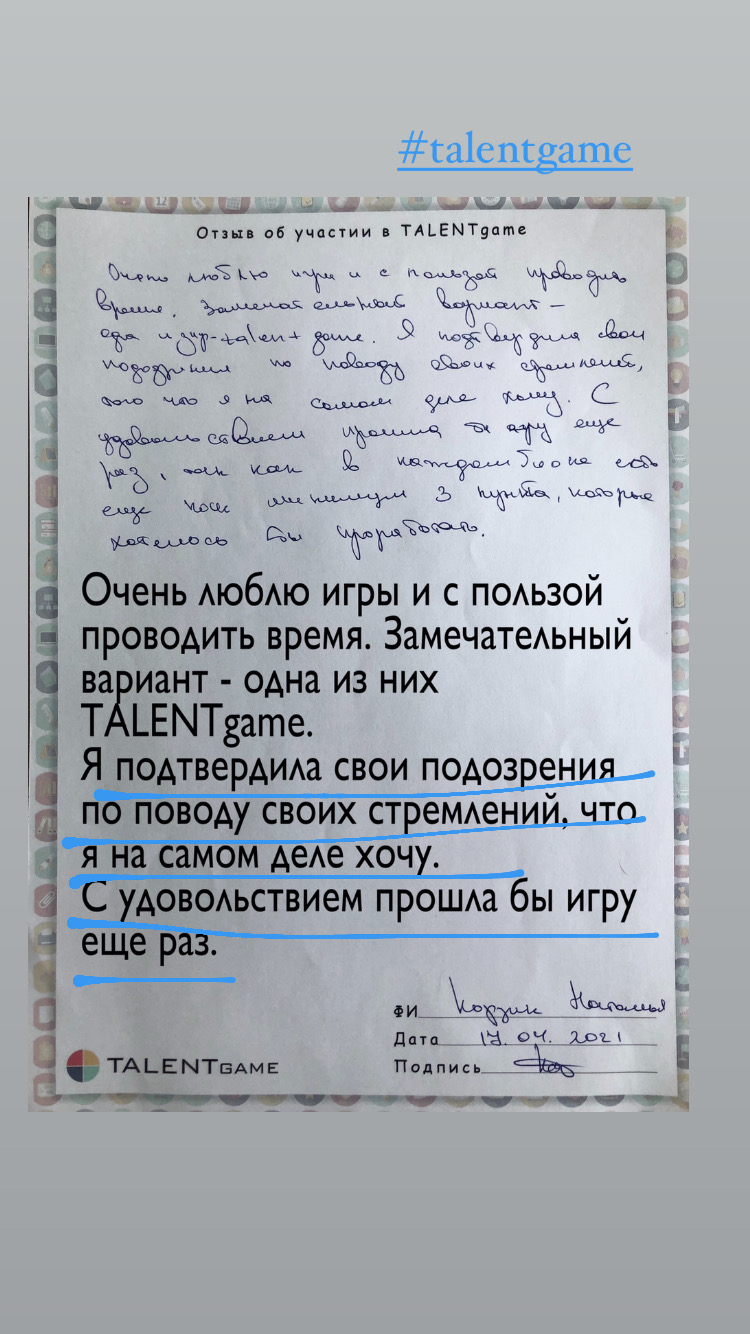 #talentgame
Отзыв об участии в TALENTgame
Очень люблю игры и с пользой проводить
время. Замечательный вариант –
одна из них - talent game. Я подтвердила свои
подозрения по поводу своих стремлений,
того что я на самом деле хочу. С
удовольствием прошла бы игру еще
раз, так как в каждом блоке есть
еще как минимум 3 пункта, которые
хотелось бы проработать.
Очень люблю игры и с пользой
проводить время. Замечательный
вариант - одна из них
TALENTgame.
Я подтвердила свои подозрения
по поводу своих стремлений, что
я на самом деле хочу.
С удовольствием прошла бы игру
еще раз.
ФИ Корзик Наталья
Дата 17.04.2021
Подпись
TALENTGAME